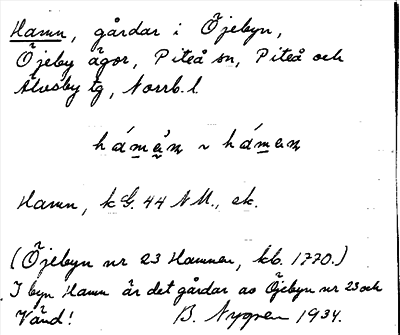 Hamn, gårdar i Öjebyn,
Öjeby ägor, Piteå sn, Piteå och
Älvsby tg, Norrb. l
hámɛn ~ hámɛn
Hamn, k G. 44 N M., ek.
(Öjebyn nr 23 Hamnen, kb. 1770.)
I byn Hamn är det gårdar av Öjebyn nr 23 och
Vänd! B. Nygren 1934.